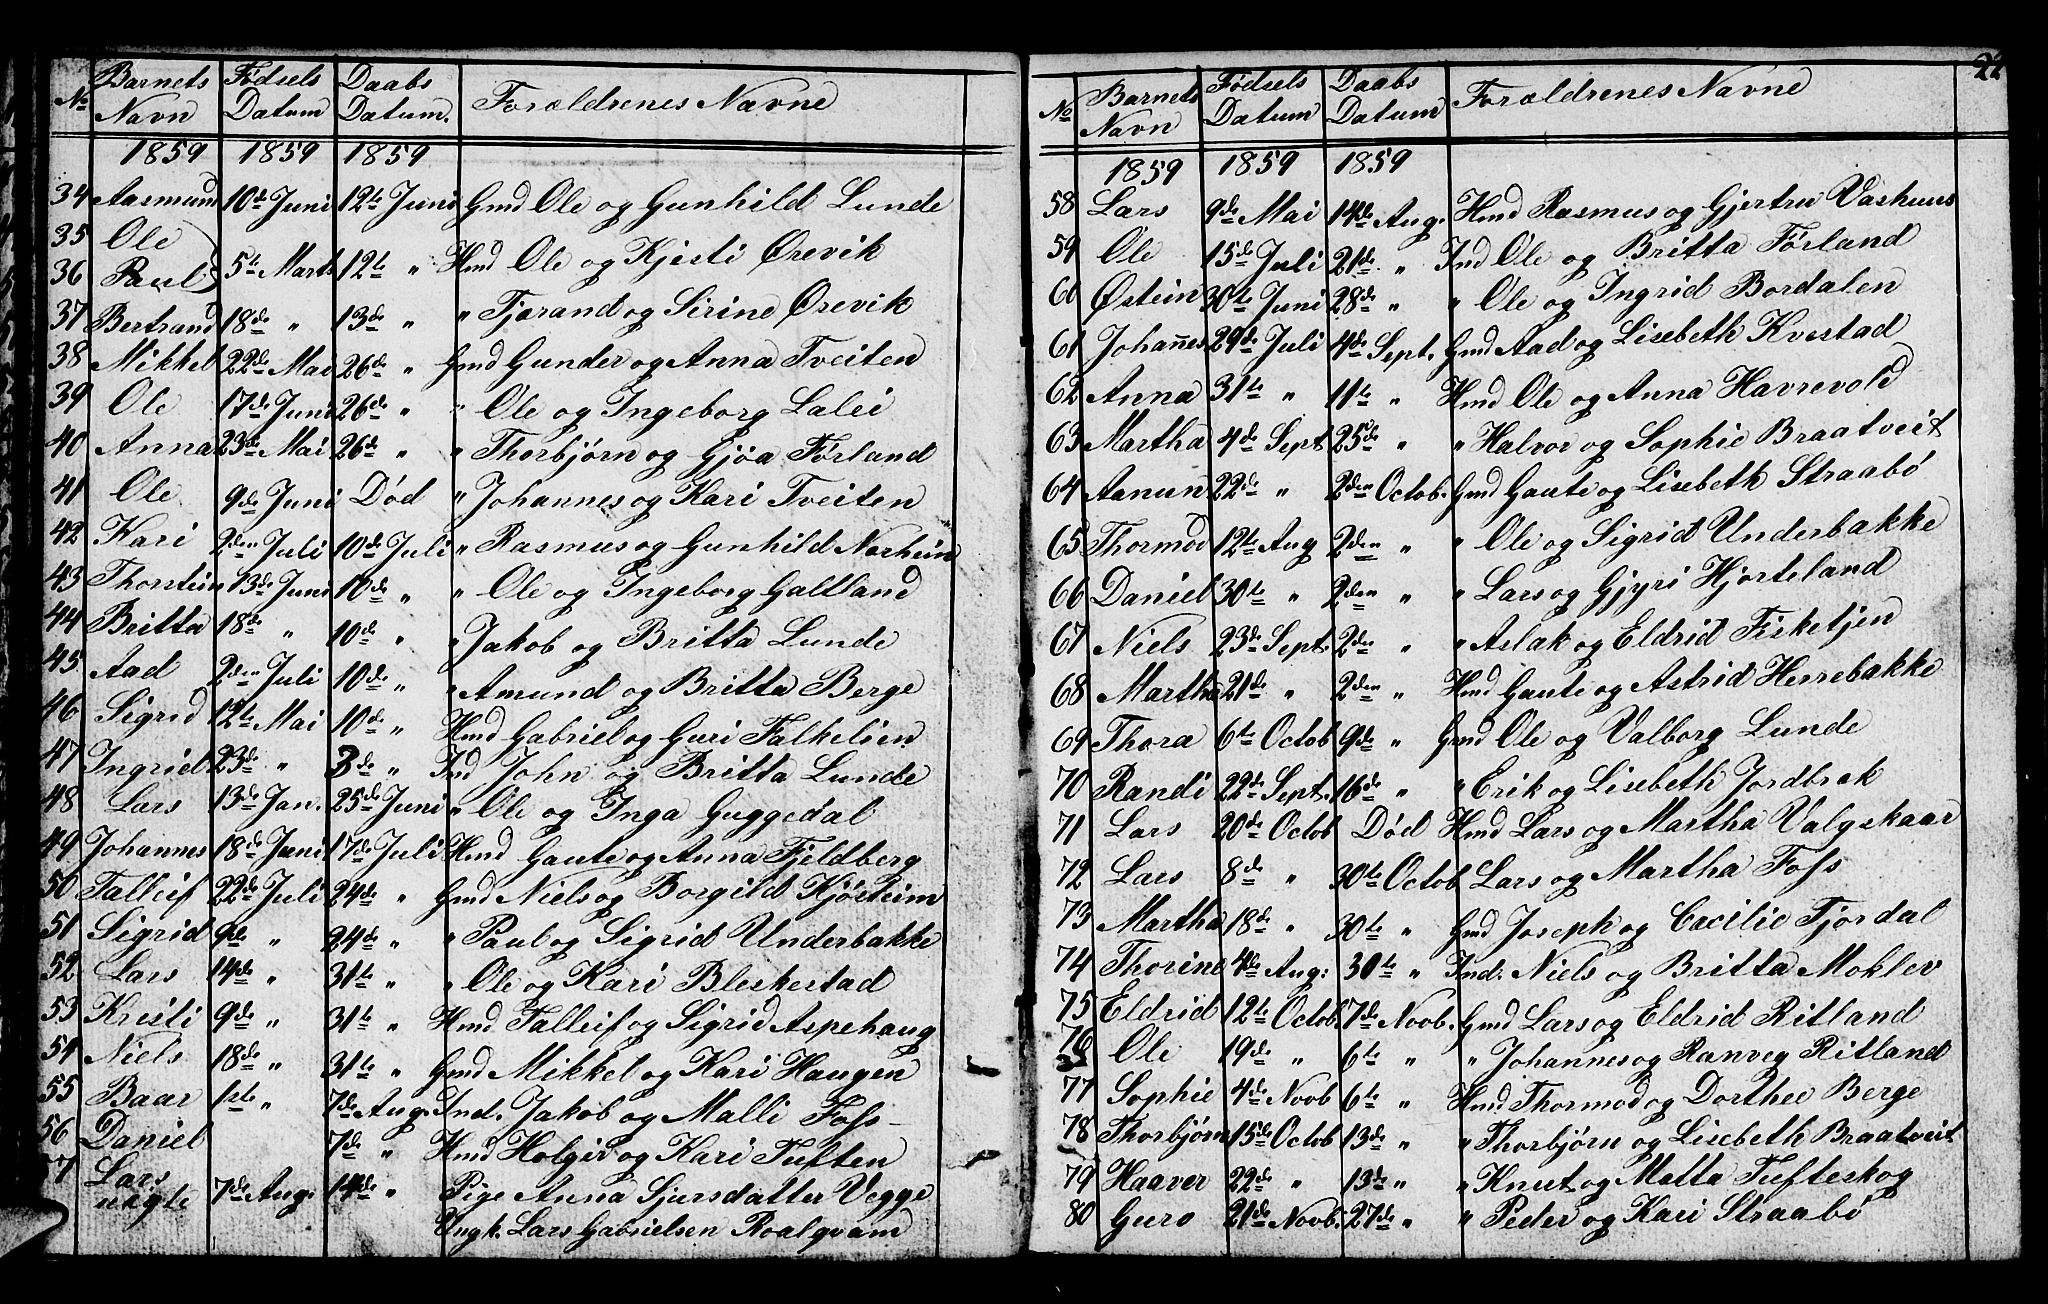 No Barnets Navn Fødsels Datum Daabs Datum. Forældrenes Navne
1859 1859 1859
34 Aasmund 10de Juni 12te Juni Gmd Ole og Gunhild Lunde
35 Ole
36 Paul 5te Marts 12te " Hmd Ole og Kjesti Ørevik
37 Bertrand 18de " 13de " " Tjerand og Sirine Ørevik
38 Mikkel 22de Mai 26de " Gmd Gunder og Anna Tveiten
39 Ole 17de Juni 26de " " Ole og Ingeborg Lalei
40 Anna 23de Mai 26de " " Thorbjørn og Gjøa Førland
41 Ole 9de Juni Død " Johannes og Kari Tveiten
42 Kari 2den Juli 10de Juli " Rasmus og Gunhild Norheim
43 Thorstein 13de Juni 10de " " Ole og Ingeborg Galtland
44 Britta 18de " 10de " " Jakob og Britta Lunde
45 Aad 2den Juli 10de " " Amund og Britta Berge
46 Sigrid 12te Mai 10de " Hmd Gabriel og Guri Falkelien
47 Ingrid 23de " 3de " Ind John og Britta Lunde
48 Lars 13de Jan. 25de Juni " Ole og Inga Guggedal
49 Johannes 18de Juni 17de Juli Hmd Gaute og Anna Fjeldberg
50 Talleif 22de Juli 24de " Gmd Niels og Borgild Kjösteim
51 Sigrid 9de " 24de " " Paul og Sigrid Underbakke
52 Lars 14de " 31te " " Ole og Kari Bleskestad
53 Kristi 9de " 31te " Hmd Talleif og Sigrid Aspehaug
54 Niels 18de " 31te " Gmd Mikkel og Kari Haugen
55 Baar 1ste " 7de Aug. Ind. Jakob og Malli Foss
56 Daniel 7de " Hmd Holgir og Kari Tuften
7 Lars uægte 7de Aug. 14de " Pige Anna Sjursdatter Vegge
Ungk. Lars Gabrielsen Roalqvam
22
No Barnets Navn Fødsels Datum Daabs Datum Forældrenes Navne
1859 1859 1859
58 Lars 9de Mai 14de Aug. Hmd Rasmus og Gjertru Vashuus
59 Ole 15de Juli 21de " Ind Ole og Britta Førland
60 Østein 30te Juni 28de " " Ole og Ingrid Bordalen
61 Johannes 29de Juli 4de Sept. Gmd Aad og Lisebeth Kvestad
62 Anna 31te " 11te " Hmd Ole og Anna Havrevold
63 Martha 4de Sept. 25de " " Halvor og Sophie Braatveit
64 Aanun 22de " 2den Octob. Gmd Gaute og Lisebeth Straabö
65 Thormod 12te Aug 2den " " Ole og Sigrid Underbakke
66 Daniel 30te " 2den " " Lars og Gjyri Hjorteland
67 Niels 23de Sept. 2den " " Aslak og Eldrid Fisketjen
68 Martha 21de " 2den " Hmd Gaute og Astrid Herrebakke
69 Thora 6te Octob 9de " Gmd Ole og Valborg Lunde
70 Randi 22de Sept. 16de " " Erik og Lisebeth Jordbrek
71 Lars 20de Octob Død Hmd Lars og Martha Valgskaar
72 Lars 8de " 30te Octob Lars og Martha Foss
73 Martha 18de " 30te " Gmd Joseph og Cecilie Fjordal
74 Thorine 4de Aug: 30te " Ind. Niels og Britta Moklev
75 Eldrid 12te Octob. 7de Noob. Gmd Lars og Eldrid Ritland
76 Ole 19de " 6te " " Johannes og Ranveg Ritland
77 Sophie 4de Noob 6te " Hmd Thormod og Dorthee Berge
78 Thorbjørn 15de Octob 13de " " Thorbjørn og Lisebeth Braatveit
79 Haaver 22de " 13de " " Knut og Metta Tufteskog
80 Guro 21de Noob. 27de " " Peder og Kari Straabö